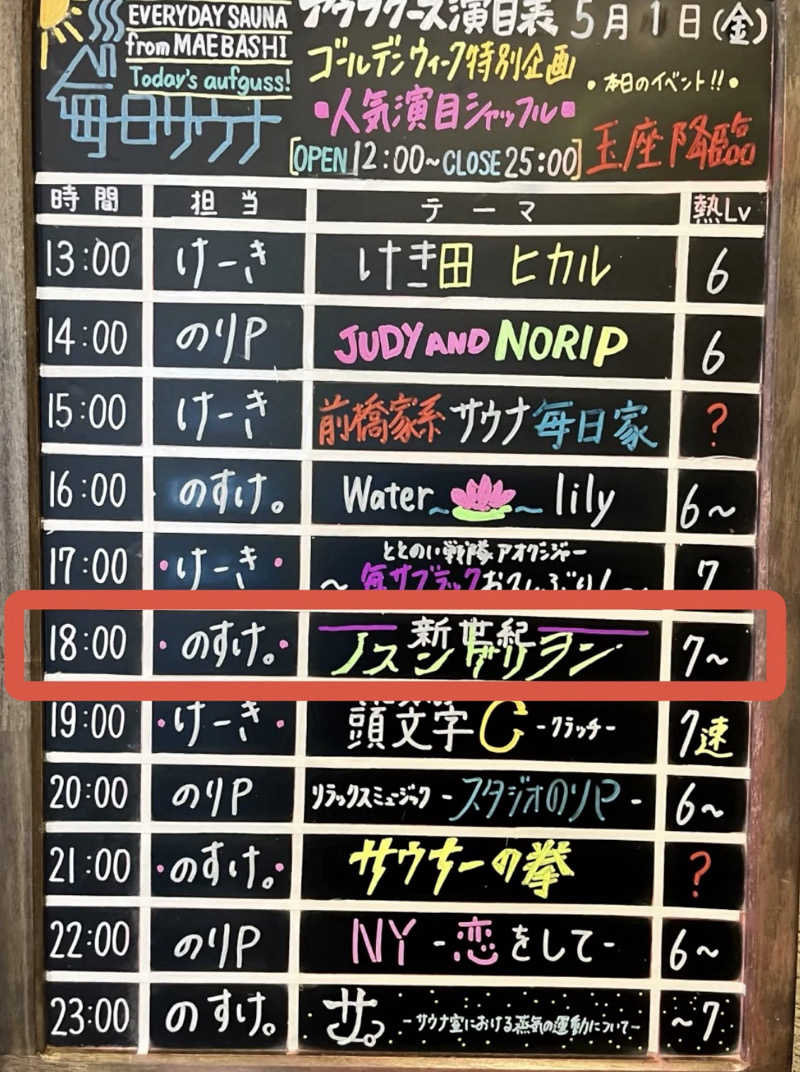 EVERYDAY SAUNA
from MAEBASHI
Today's aufguss!
毎日サウナ
アウフグース演目表 5月1日(金)
ゴールデンウィーク特別企画
・本日のイベント!!・
■人気演目シャッフル■
[OPEN 12:00~CLOSE 25:00]
玉座降臨
時間 担当 テーマ 熱Lv
13:00 けーき けき田 ヒカル 6
14:00 のりP JUDY AND NORIP 6
15:00 けーき 前橋家系サウナ毎日家 ?
16:00 のすけ。 Water ~ ~ lily 6~
ととのい戦隊アオグンジャー
17:00 ・けーき・ ~毎サブラックおひさしぶり!~ 7
新世紀
18:00 ・のすけ。・ ノスンゲリヲン 7~
19:00 ・けーき・ 頭文字C -クラッチ- 7速
20:00 のりP リラックスミュージック -スタジオのりP- 6~
21:00 ・のすけ。・ サウナーの拳 ?
22:00 のりP NY -恋をして- 6~
23:00 のすけ。 サ。 -サウナ室における蒸気の運動について- ~7